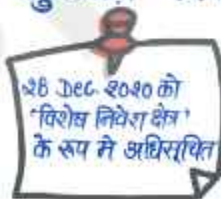 28 Dec. 2020 को
"विशेष निवेश क्षेत्र"
के रूप मे अधिसूचित